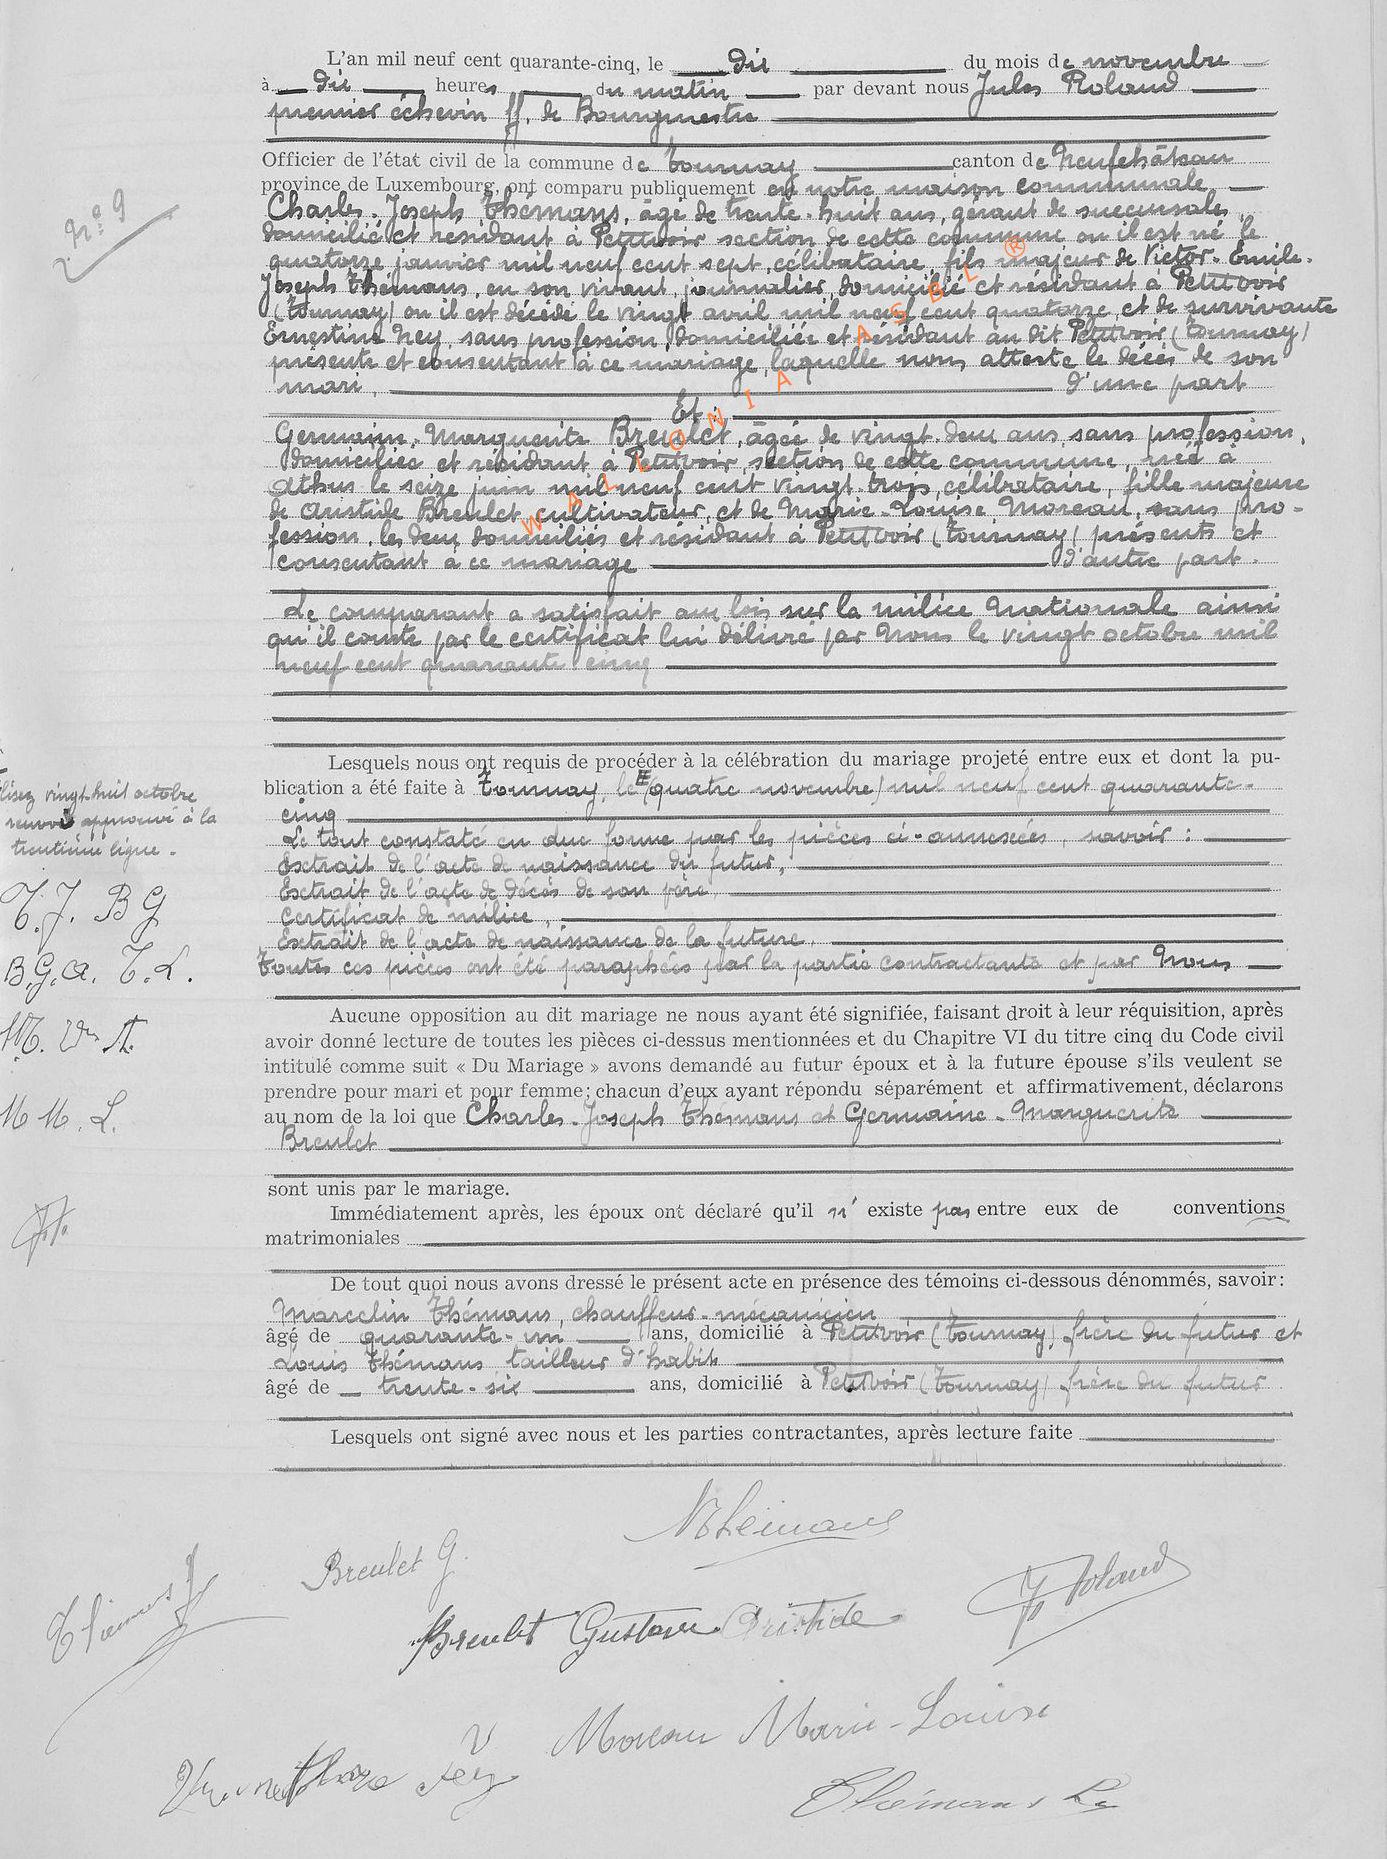 L'an mil neuf cent quarante-cinq, le dix du mois de novembre
à dix heures du matin par devant nous Jules Roland
premier échevin ff. de Bourgmestre
Officier de l'état civil de la commune de Tournay canton de Neufchâteau
province de Luxembourg, ont comparu publiquement en notre maison communale
N° 9
Charles-Joseph Thémans, âgé de trente-huit ans, gérant de succursale,
domicilié et résidant à Petitvoir section de cette commune où il est né le
quatorze janvier mil neuf cent sept, célibataire, fils majeur de Victor-Emile-
Joseph Thémans, en son vivant, journalier, domicilié et résidant à Petitvoir
(Tournay) où il est décédé le vingt avril mil neuf cent quatorze, et de survivante
Ernestine Ney, sans profession, domiciliée et résidant au dit Petitvoir (Tournay)
présente et consentant à ce mariage, laquelle nous atteste le décès de son
mari, d'une part
Et :
Germaine-Marguerite Breulet, âgée de vingt-deux ans, sans profession,
domiciliée et résidant à Petitvoir, section de cette commune, née à
Athus le seize juin mil neuf cent vingt-trois, célibataire, fille majeure
de Aristide Breulet cultivateur, et de Marie-Louise Moreau, sans pro-
fession, les deux domiciliés et résidant à Petitvoir (Tournay) présents et
consentant à ce mariage d'autre part.
WALLONIA ASBL ®
Le comparant a satisfait aux lois sur la milice nationale ainsi
qu'il conste par le certificat lui délivré par Nous le vingt octobre mil
neuf cent quarante cinq
Lesquels nous ont requis de procéder à la célébration du mariage projeté entre eux et dont la pu-
blication a été faite à Tournay, le (quatre novembre) mil neuf cent quarante-
cinq
lisez vingt-huit octobre
renvoi approuvé à la
trentième ligne.
Le tout constaté en due forme par les pièces ci-annexées, savoir :
Extrait de l'acte de naissance du futur,
Extrait de l'acte de décès de son père,
Certificat de milice,
Extrait de l'acte de naissance de la future.
Toutes ces pièces ont été paraphées par la partie contractante et par Nous
T. J. B G
B.G.A. T. L.
M M. L.
Aucune opposition au dit mariage ne nous ayant été signifiée, faisant droit à leur réquisition, après
avoir donné lecture de toutes les pièces ci-dessus mentionnées et du Chapitre VI du titre cinq du Code civil
intitulé comme suit « Du Mariage » avons demandé au futur époux et à la future épouse s'ils veulent se
prendre pour mari et pour femme; chacun d'eux ayant répondu séparément et affirmativement, déclarons
au nom de la loi que Charles-Joseph Thémans et Germaine-Marguerite
Breulet
sont unis par le mariage.
Immédiatement après, les époux ont déclaré qu'il n' existe pas entre eux de conventions
matrimoniales
De tout quoi nous avons dressé le présent acte en présence des témoins ci-dessous dénommés, savoir :
Marcelin Thémans, chauffeur-mécanicien
âgé de quarante-un ans, domicilié à Petitvoir (Tournay) frère du futur et
Louis Thémans tailleur d'habits
âgé de trente-six ans, domicilié à Petitvoir (Tournay) frère du futur
Lesquels ont signé avec nous et les parties contractantes, après lecture faite
Thémans
Breulet G.
Thémans J
J. Roland
Breulet Gustave Aristide
Moreau Marie-Louise
Ney
Thémans L